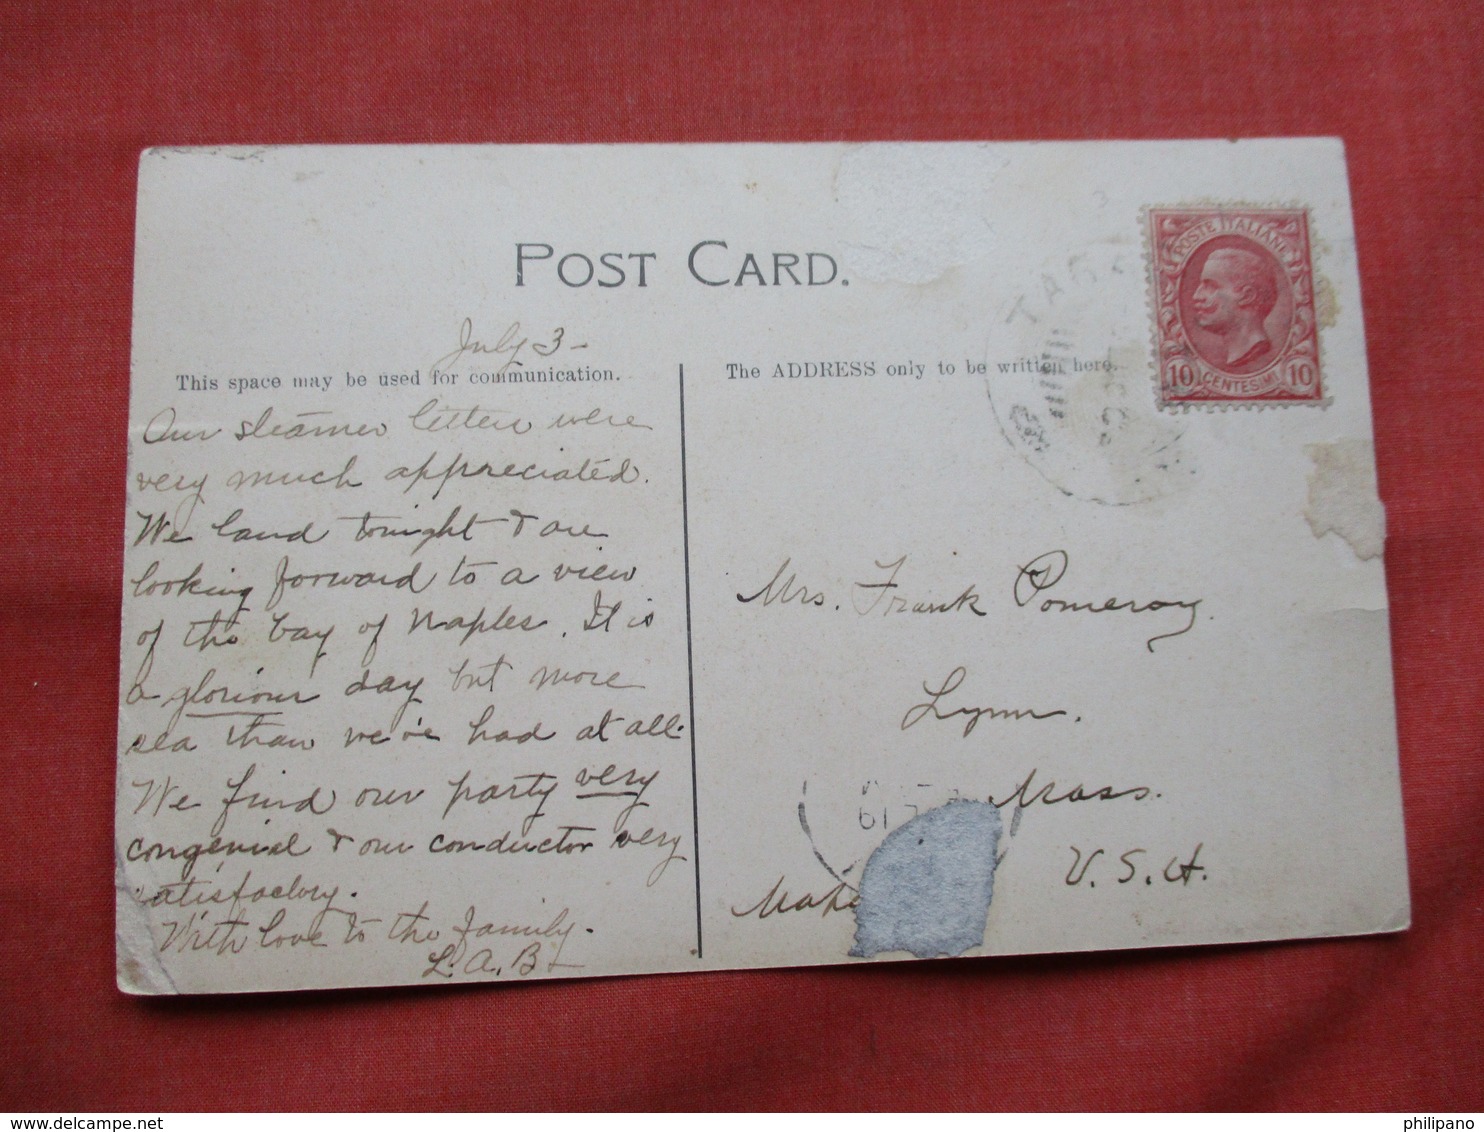 POST CARD.
July 3 –
This space may be used for communication.
Our steamer letters were
very much appreciated.
We land tonight & are
looking forward to a view
of the bay of Naples. It is
a glorious day but more
sea than we've had at all.
We find our party very
congenial & our conductor very
satisfactory.
With love to the family.
L. A. B.
The ADDRESS only to be written here.
POSTE ITALIANE
10 CENTESIMI 10
Mrs. Frank Pomeroy.
Lynn.
Mass.
U. S. A.
philipano